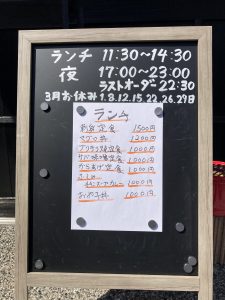 ランチ 11:30〜14:30
夜 17:00〜23:00
ラストオーダー 22:30
3月お休み 1.8.12.15 22.26.29日
ランチ
刺身定食 1500円
マグロ丼 1200円
ブリ 定食 1000円
サバ 定食 1000円
からあげ定食 1000円
チキンスープカレー 1000円
おやこ丼 1000円